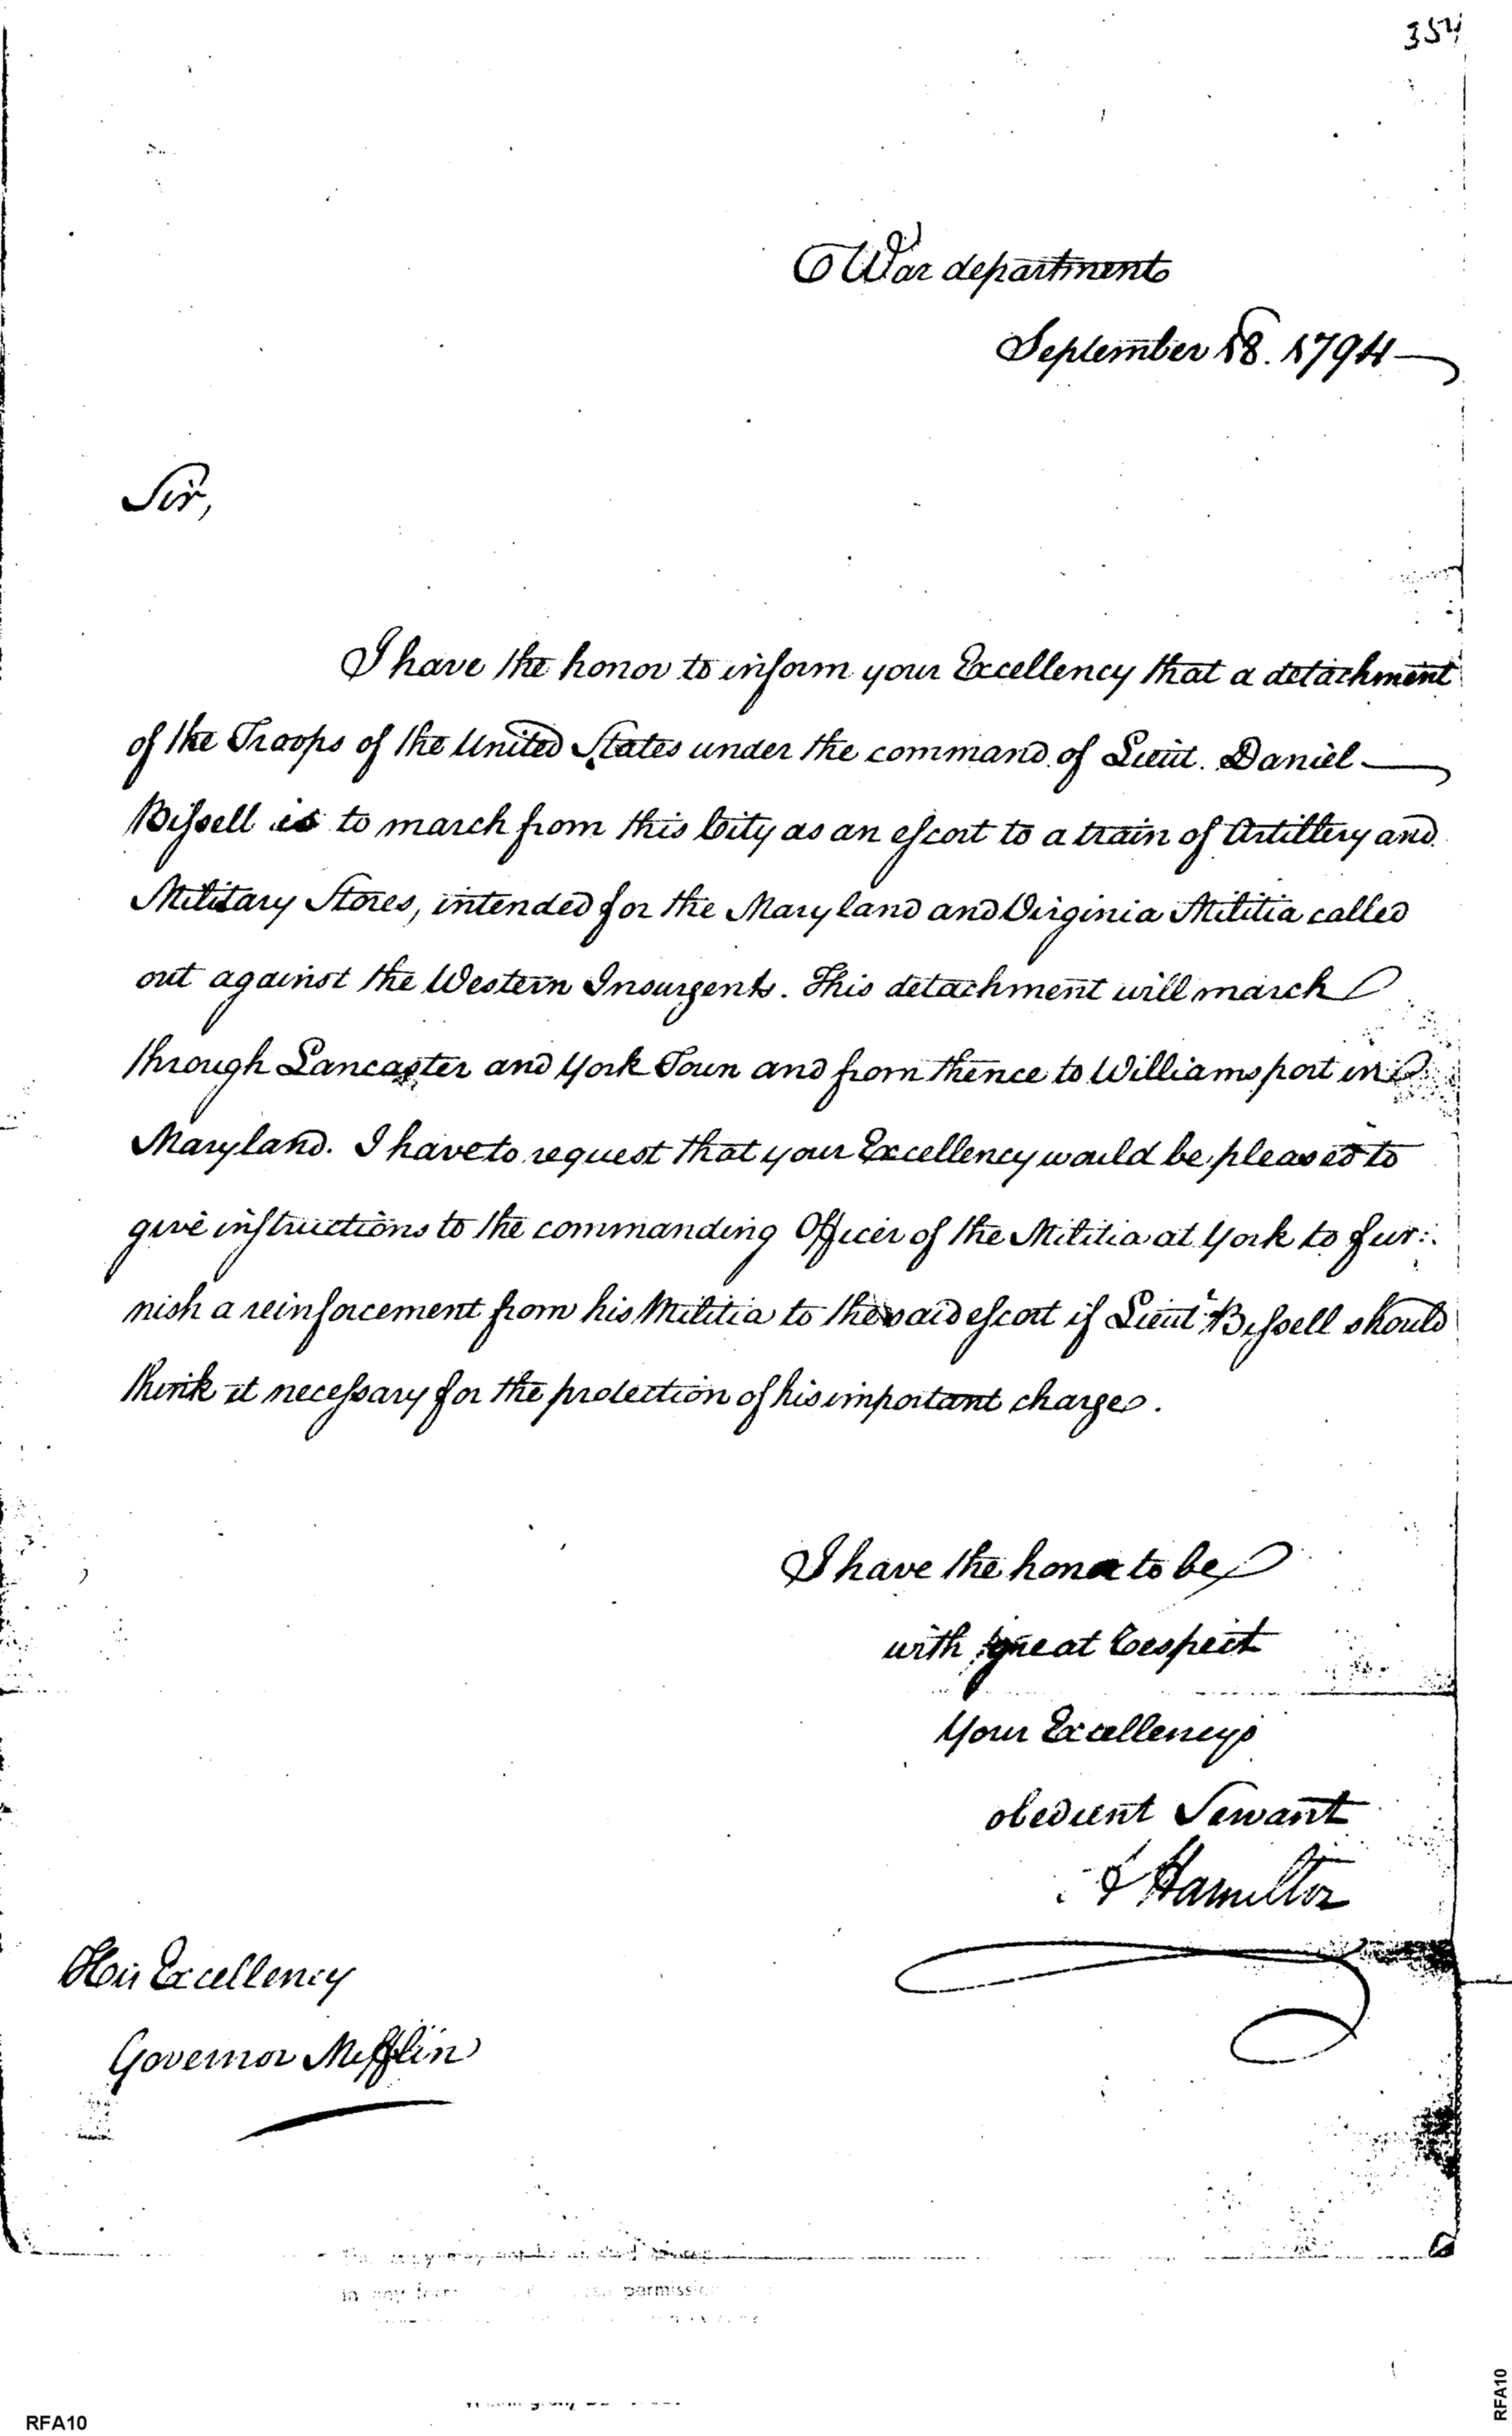 354
War department
September 18. 1794
Sir,
I have the honor to inform your Excellency that a detachment
of the Troops of the United States under the command of Lieut. Daniel
Bissell is to march from this City as an escort to a train of Artillery and
Military Stores, intended for the Maryland and Virginia Militia called
out against the Western Insurgents. This detachment will march
through Lancaster and York Town and from thence to Williamsport in
Maryland. I have to request that your Excellency would be pleased to
give instructions to the commanding Officer of the Militia at York to fur:
nish a reinforcement from his Militia to the said escort if Lieut Bissell should
think it necessary for the protection of his important charge.
I have the honor to be
with great respect
Your Excellencys
obedient Servant
A Hamilton
His Excellency
Governor Mifflin
in any permission
RFA10
RFA10